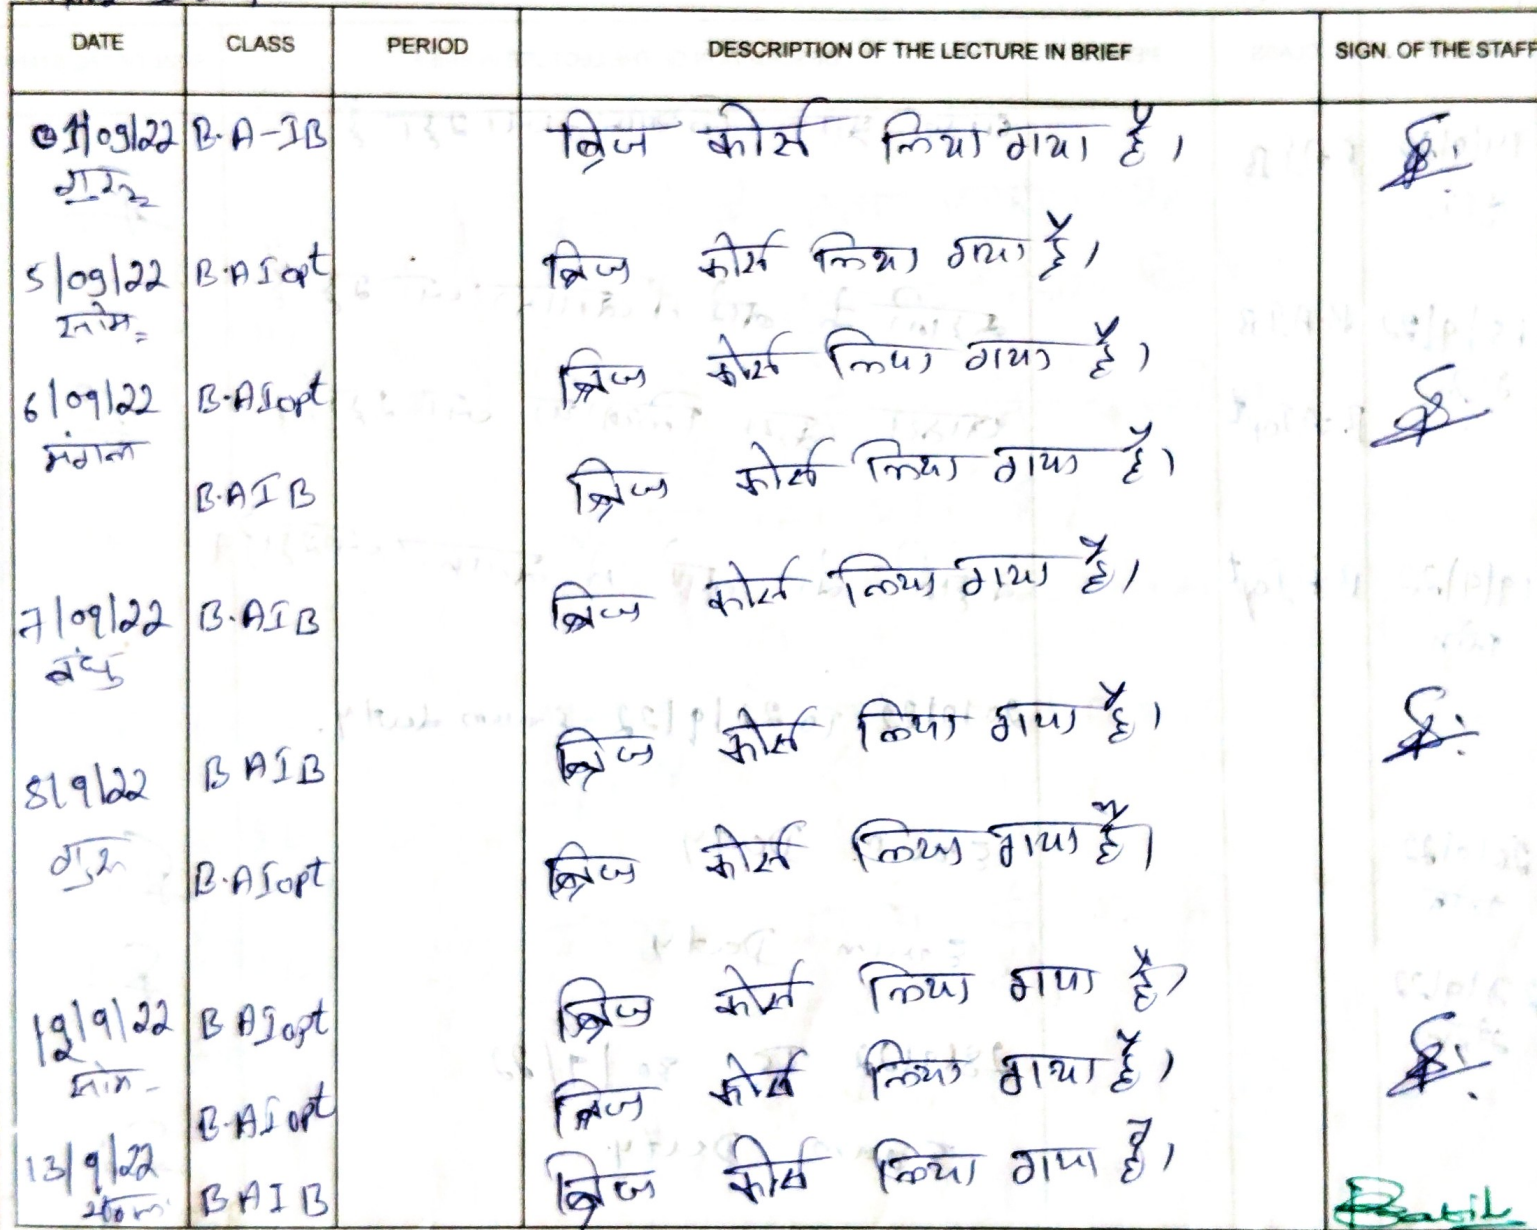 DATE CLASS PERIOD DESCRIPTION OF THE LECTURE IN BRIEF SIGN. OF THE STAFF
01/09/22 B.A-IB ब्रिज कोर्स लिया गया है।
गुरु
5/09/22 B.A I opt ब्रिज कोर्स लिया गया है।
सोम
6/09/22 B.A I opt ब्रिज कोर्स लिया गया है।
मंगल
B.A I B ब्रिज कोर्स लिया गया है।
7/09/22 B.A I B ब्रिज कोर्स लिया गया है।
बुध
8/9/22 B A I B ब्रिज कोर्स लिया गया है।
गुरु
B.A I opt ब्रिज कोर्स लिया गया है।
12/9/22 B A I opt ब्रिज कोर्स लिया गया है।
सोम
B.A I opt ब्रिज कोर्स लिया गया है।
13/9/22
B A I B ब्रिज कोर्स लिया गया है।